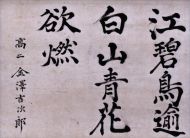 江碧鳥逾
白山青花
欲燃
高二 金澤吉次郎